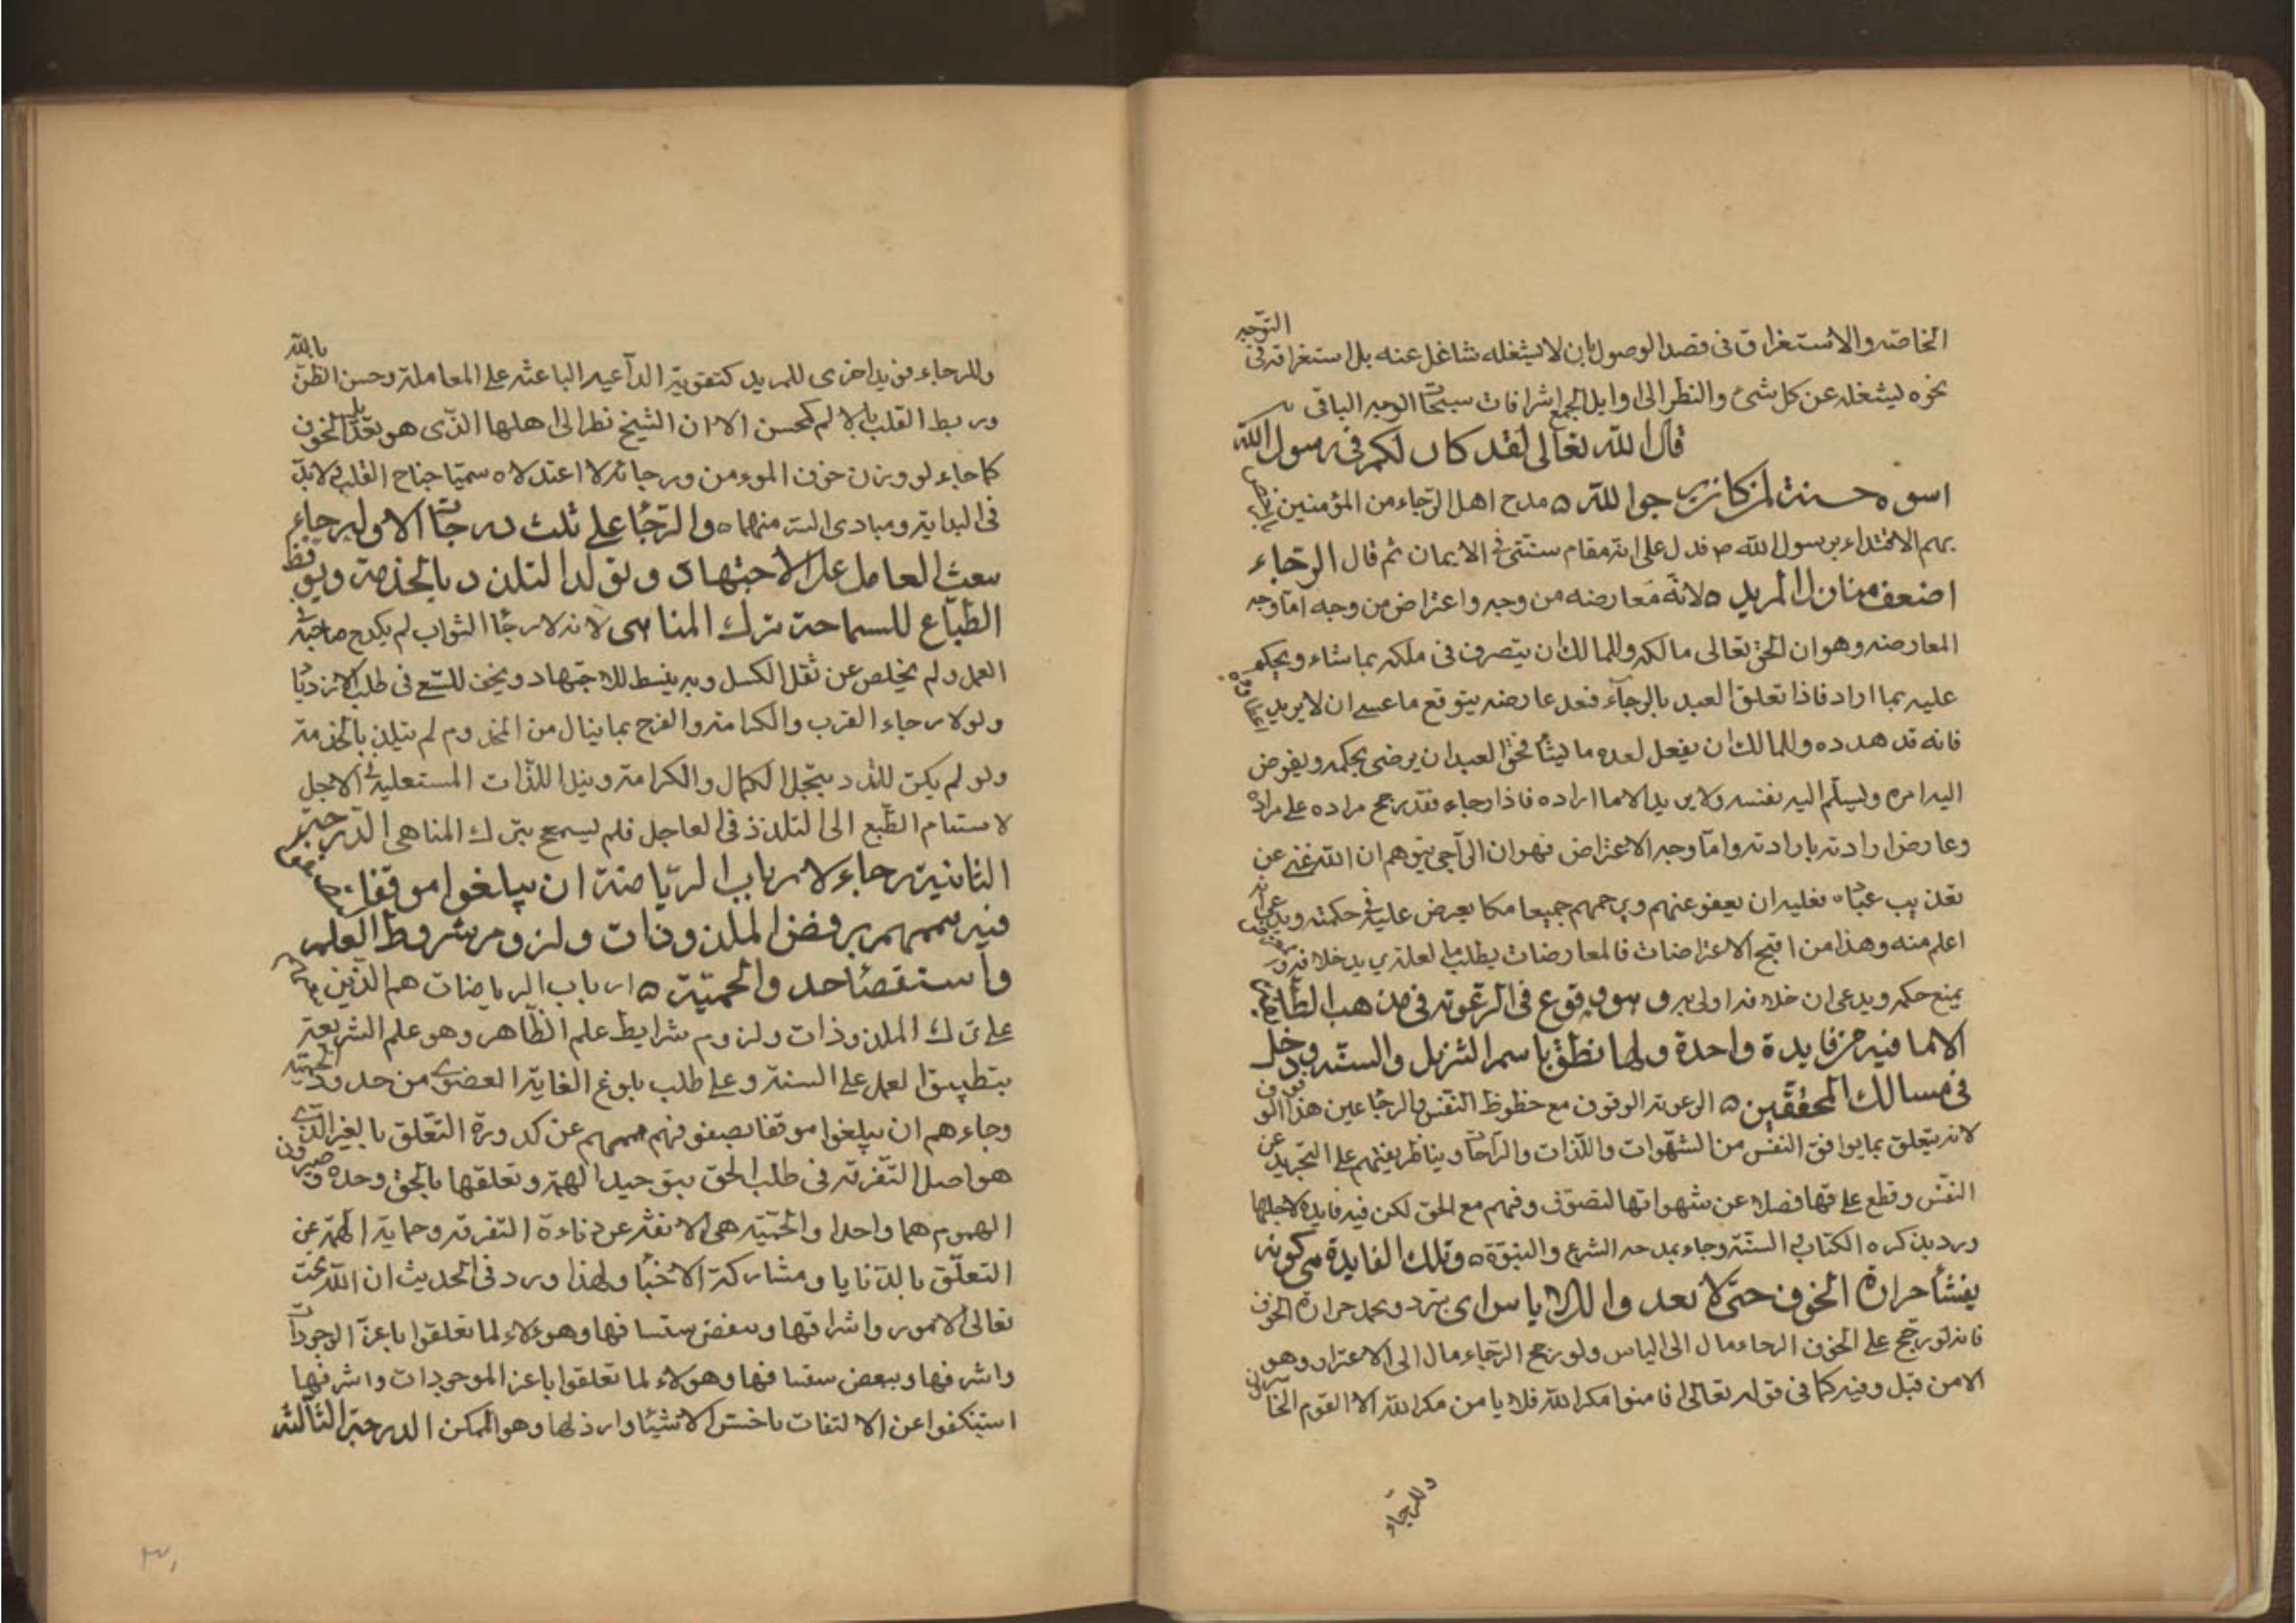 الخاصة والاستغراق فى قصد الوصول بان لا يشغله شاغل عنه بل استغراقه فى التوجه
نحوه ليشغله عن كل شئ والنظر الى اوايل الجمع اشراقات سبحات الوجه الباقى
قال الله تعالى لقد كان لكم فى رسول الله
اسوة حسنة لمن كان يرجوا الله مدح اهل الرجاء من المؤمنين
بهم الاقتداء برسول الله ص فدل على انه مقام سنى فى الايمان ثم قال الرجاء
اضعف منازل المريد لانه معارضه من وجه واعتراض من وجه اما وجه
المعارضه وهو ان الحق تعالى مالكه وللمالك ان يتصرف فى ملكه بما شاء ويحكم
عليه بما اراد فاذا تعلق العبد بالرجآء فعد عارضه بتوقع ما عسى ان لا يريد
فانه قد هدده وللمالك ان يفعل لعبده ما يشأ فحق العبد ان يرضى بحكمه ويفوض
اليه امره ويسلم اليه نفسه ولا يريد الا ما اراده فاذا رجاء فقد رجح مراده على مراده
وعارض ارادته بارادته واما وجه الاعتراض فهو ان الراجى يتوهم ان الله غنى عن
تعذيب عباده فعليه ان يعفو عنهم ويرحمهم جميعا مكا يعرض عليه فى حكمته ويدعى انه
اعلم منه وهذا من اقبح الاعتراضات فالمعارضات يطلب ما لعله يريد خلافه و
يمنع حكمه ويدعى ان خلافه اولى به وهو وقوع فى الرعونه فى مذهب الطائفه
الا ما فيه من فايدة واحدة ولها نطق باسم التنزيل والسنه ودخل
فى مسالك المحققين الرعونه الوقوف مع حظوظ النفس والرجا عين هذا الوقوف
لانه يتعلق بما يوافق النفس من الشهوات واللذات والراحات ويناظر بغيتهم على التجريد عن
النفس وقطع علقها فضلا عن شهواتها لتصوف وفهم مع الحق لكن فيه فايدة لاجلها
ورد بذكره الكتاب والسنة وجاء بمدحه الشرع والنبوة وتلك الفايدة هى كونه
يفشأ حرارة الخوف حتى لا تعدوا الى الاياس اى يبرد ويخمد حرارة الخوف
فانه لو رجح على الخوف الرجاء مال الى الياس ولو رجح الرجاء مال الى الاغترار وهو
الامن قبل وفيه كما فى قوله تعالى افامنوا مكر الله فلا يامن مكر الله الا القوم الخاسرون
وللرجاء
وللرجاء فوايد اخرى للمريد كتقوية الدآعيه الباعثه على المعاملة وحسن الظن بالله
وربط القلب بالا لم كمحسن الا ان الشيخ نظر الى اهلها الذى هو تعديل الخوف
كما جاء لو وزن خوف المومن ورجائه لاعتدلا وسميا جناح القلب ولا بد
فى البداية ومبادى منهما والرجاء على ثلث درجات الاولى رجاء
يبعث العامل على الاجتهاد ويولد التلذذ بالخدمة ويوقظ
الطباع للسماحة بترك المناهى لانه لا رجا الثواب لم يكدح صاحبه فى
العمل ولم يخلص عن ثقل الكسل وبه ينبسط للاجتهاد ويخف للسعى فى طلب الازدياد
ولولا رجاء القرب والكرامة والفرح بما ينال من المخدوم لم يتلذذ بالخدمة
ولو لم يكن للتلذذ بتخيل الكمال والكرامة ونيل اللذات المستعلية فى الاجل
لاستقام الطبع الى التلذذ فى العاجل فلم يسمح بترك المناهى الدرجة
الثانية رجاء لارباب الرياضة ان يبلغوا موقفا
فيه هممهم برفض الملذوذات ولزوم شروط العلم
واستقصا حد والحمية ارباب الرياضات هم الذين
على ترك الملذوذات ولزوم شرايط علم الظاهر وهو علم الشريعة
بتطبيق العمل على السنة وعلى طلب بلوغ الغاية القصوى من حدود الحمية
وجاءهم ان يبلغوا موقفا يصفو فيهم هممهم عن كدورة التعلق بالغير الذى
هو اصل التفرقه فى طلب الحق بتوحيد الهمة وتعلقها بالحق وحده وصيرون
الهموم هما واحدا والحميه هى الانفة عن دناءة التفرقه وحماية الهمة عن
التعلق بالدنايا ومشاركة الاخبا ولهذا ورد فى الحديث ان الله يحب
تعالى الامور واشرافها ويبغض سفسافها وهوءلاء لما تعلقوا باعز الوجودات
واشرفها ويبغض سفسافها وهولاء لما تعلقوا باعز الموجودات واشرفها
استنكفوا عن الالتفات باخس الاشيا وارذلها وهو الممكن الدرجة الثالثة